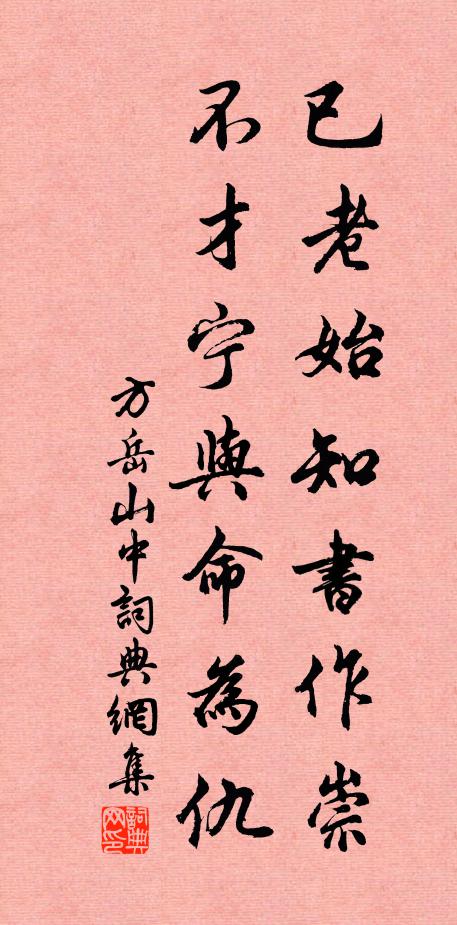 已老始知書作祟
不才宁與命為仇
方岳山中詞典網集
詞典网印